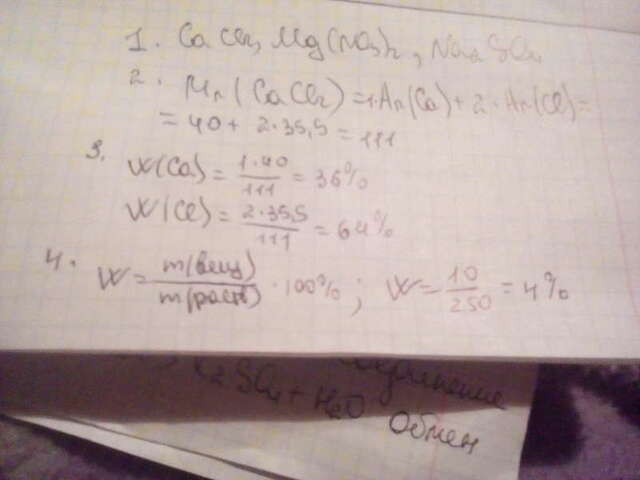 1. CaCl₂, Mg(NO₃)₂, Na₂SO₄
2. Mr(CaCl₂)=1·Ar(Ca)+2·Ar(Cl)=
=40+2·35,5=111
3. W(Ca)=1·40/111=36%
W(Cl)=2·35,5/111=64%
4. W=m(вещ)/m(раств)·100%; W=10/250=4%
₂SO₄+H₂O
Обмен